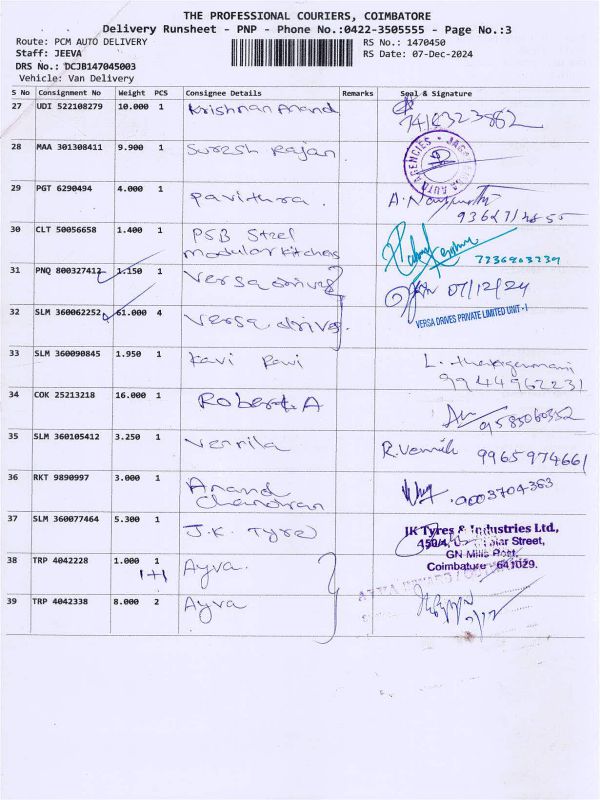 THE PROFESSIONAL COURIERS, COIMBATORE
Delivery Runsheet - PNP - Phone No.:0422-3505555 - Page No.:3
Route: PCM AUTO DELIVERY RS No.: 1470450
Staff: JEEVA RS Date: 07-Dec-2024
DRS No.: DCJB147045003
Vehicle: Van Delivery
S No Consignment No Weight PCS Consignee Details Remarks Seal & Signature
27 UDI 522108279 10.000 1 Krishnan Anand
28 MAA 301308411 9.900 1 Suresh Rajan
AUTO AGENCIES
29 PGT 6290494 4.000 1 Pavithra.
30 CLT 50056658 1.400 1 PSB Steel
modular kitchens
31 PNQ 800327412 1.150 1 Versa drives 07/12/24
32 SLM 360062252 61.000 4 Versa drives.
VERSA DRIVES PRIVATE LIMITED UNIT - I
33 SLM 360090845 1.950 1 Kavi Ravi
9944962231
34 COK 25213218 16.000 1 Robert. A
35 SLM 360105412 3.250 1 Vennila 9965974661
36 RKT 9890997 3.000 1 Anand
Chandran
37 SLM 360077464 5.300 1 J.K. Tyre
JK Tyres & Industries Ltd.,
Street,
GN Mills Post,
Coimbatore - 641029.
38 TRP 4042228 1.000 1 Ayva.
1+1
39 TRP 4042338 8.000 2 Ayva